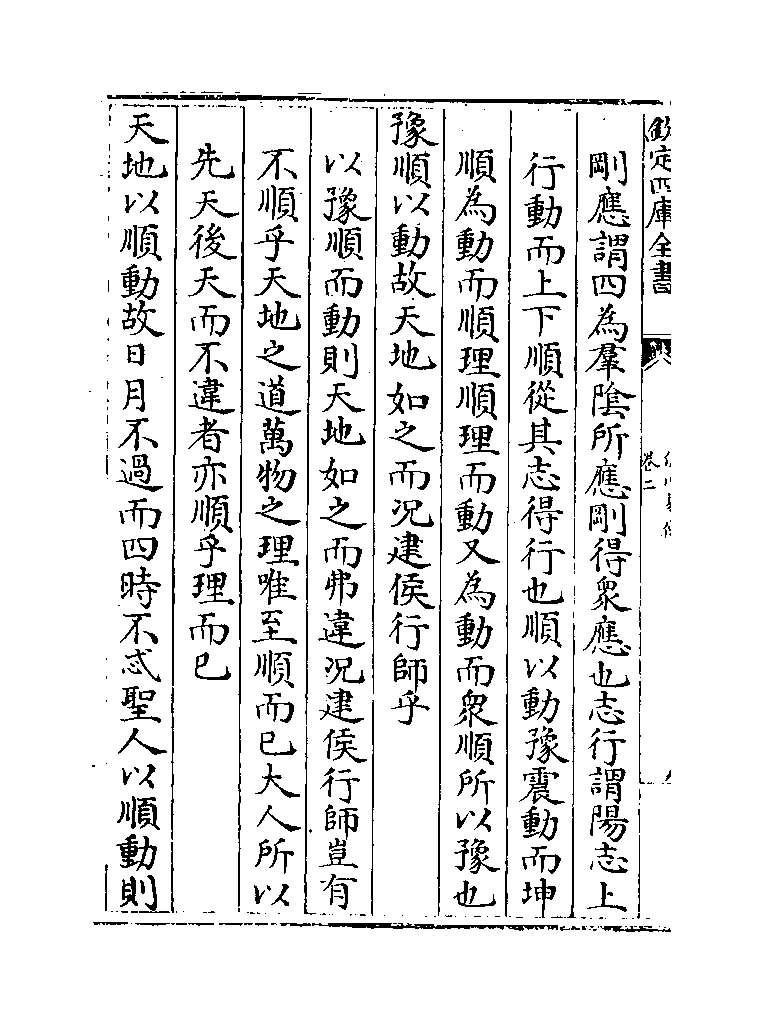 欽定四庫全書
卷二
剛應謂四為羣陰所應剛得衆應也志行謂陽志上
行動而上下順從其志得行也順以動豫震動而坤
順為動而順理順理而動又為動而衆順所以豫也
豫順以動故天地如之而况建侯行師乎
以豫順而動則天地如之而弗違况建侯行師豈有
不順乎天地之道萬物之理唯至順而已大人所以
先天後天而不違者亦順乎理而已
天地以順動故日月不過而四時不忒聖人以順動則